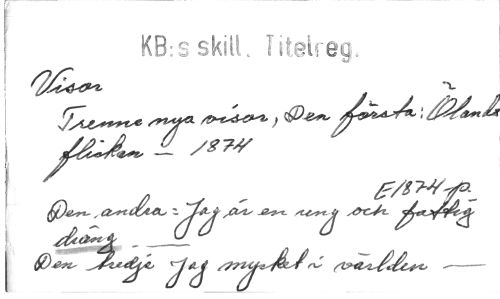 KB:s skill. Titelreg.
Visor
Trenne nya visor, Den första: Ölands
flickan — 1874
E1874 p.
Den andra = Jag är en ung och fattig
dräng ——
Den tredje Jag mycket i världen —